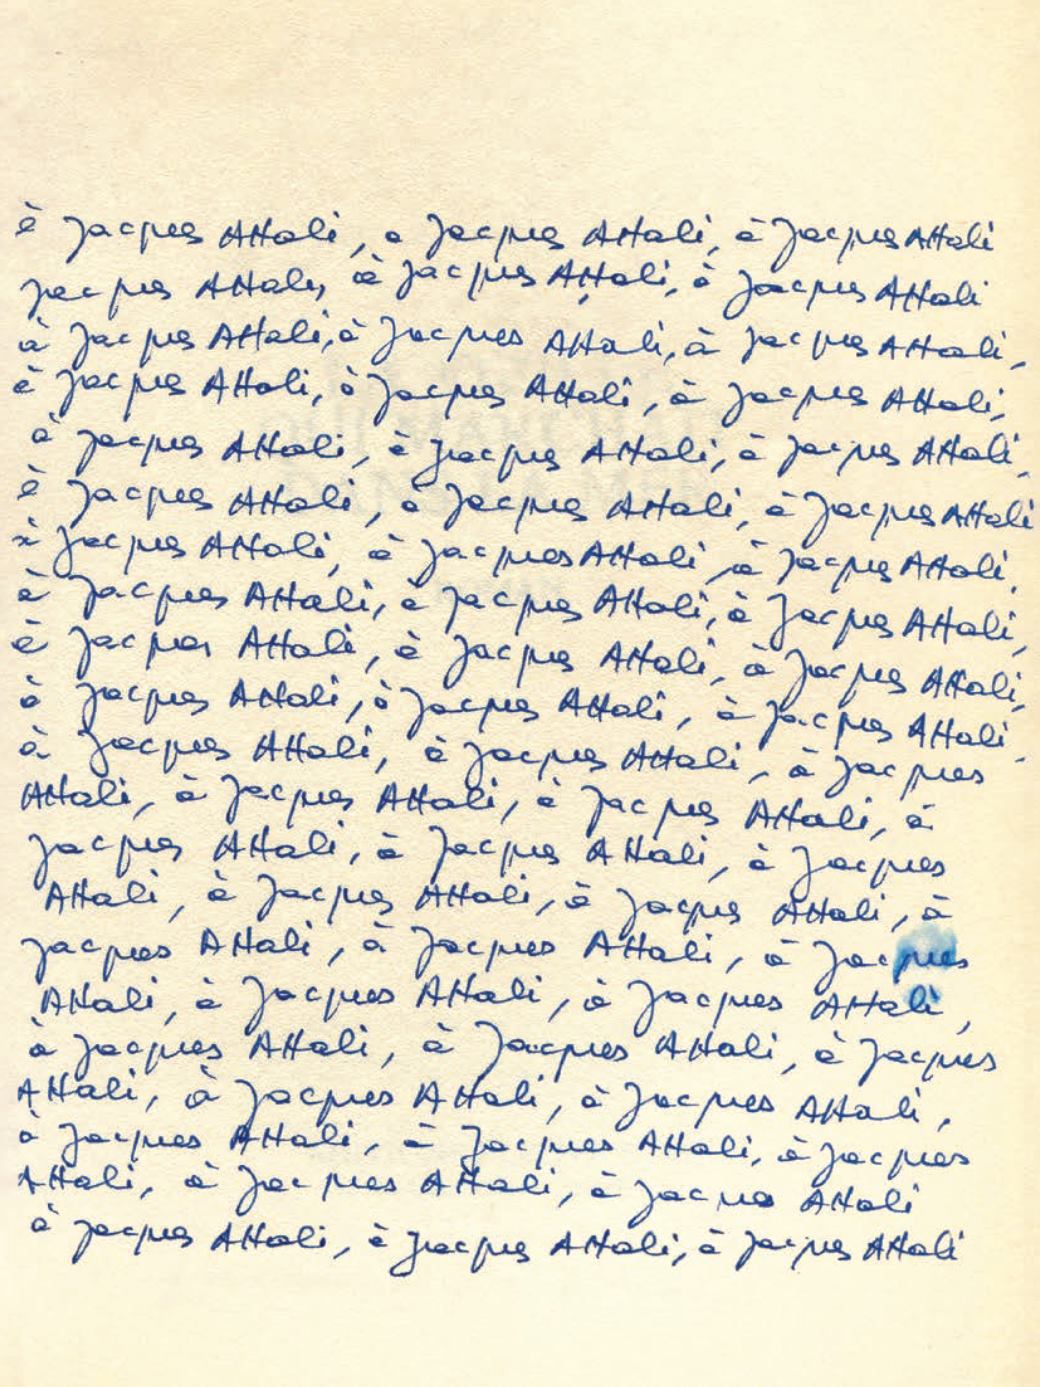 à Jacques Attali, a Jacques Attali, à Jacques Attali
Jacques Attali, à Jacques Attali, à Jacques Attali
à Jacques Attali, à Jacques Attali, à Jacques Attali,
à Jacques Attali, à Jacques Attali, à Jacques Attali,
à Jacques Attali, à Jacques Attali, à Jacques Attali,
à Jacques Attali, à Jacques Attali, à Jacques Attali
à Jacques Attali, à Jacques Attali, à Jacques Attali,
à Jacques Attali, à Jacques Attali, à Jacques Attali,
à Jacques Attali, à Jacques Attali, à Jacques Attali,
à Jacques Attali, à Jacques Attali, à Jacques Attali,
à Jacques Attali, à Jacques Attali, à Jacques
Attali, à Jacques Attali, à Jacques Attali, à
Jacques Attali, à Jacques Attali, à Jacques
Attali, à Jacques Attali, à Jacques Attali, à
Jacques Attali, à Jacques Attali, à Jacques
Attali, à Jacques Attali, à Jacques Attali,
à Jacques Attali, à Jacques Attali, à Jacques
Attali, à Jacques Attali, à Jacques Attali,
à Jacques Attali, à Jacques Attali, à Jacques
Attali, à Jacques Attali, à Jacques Attali
à Jacques Attali, à Jacques Attali, à Jacques Attali